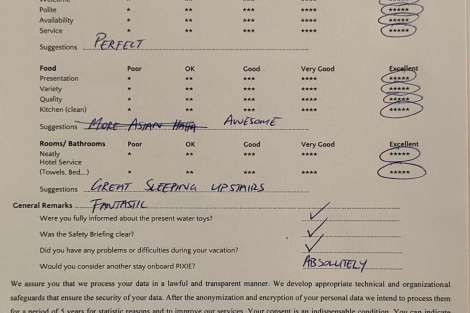 Polite * ** *** **** *****
Availability * ** *** **** *****
Service * ** *** **** *****
Suggestions PERFECT
Food Poor OK Good Very Good Excellent
Presentation * ** *** **** *****
Variety * ** *** **** *****
Quality * ** *** **** *****
Kitchen (clean) * ** *** **** *****
Suggestions MORE ASIAN AWESOME
Rooms/ Bathrooms Poor OK Good Very Good Excellent
Neatly * ** *** **** *****
Hotel Service
(Towels, Bed...) * ** *** **** *****
Suggestions GREAT SLEEPING UPSTAIRS
General Remarks FANTASTIC
Were you fully informed about the present water toys? ✓
Was the Safety Briefing clear? ✓
Did you have any problems or difficulties during your vacation? ✓
Would you consider another stay onboard PIXIE? ABSOLUTELY
We assure you that we process your data in a lawful and transparent manner. We develop appropriate technical and organizational
safeguards that ensure the security of your data. After the anonymization and encryption of your personal data we intend to process them
for a period of 5 years for statistic reasons and to improve our services. Your consent is an indispensable condition. You can indicate